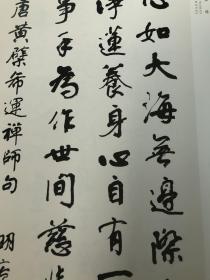 心如大海無邊際
淨蓮養身心自有一
事手為作世間慈悲
唐黃檗希運禪師句 明